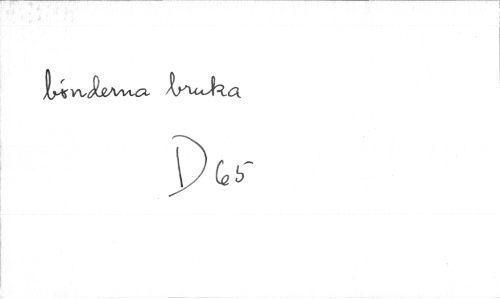 bönderna bruka
D 65